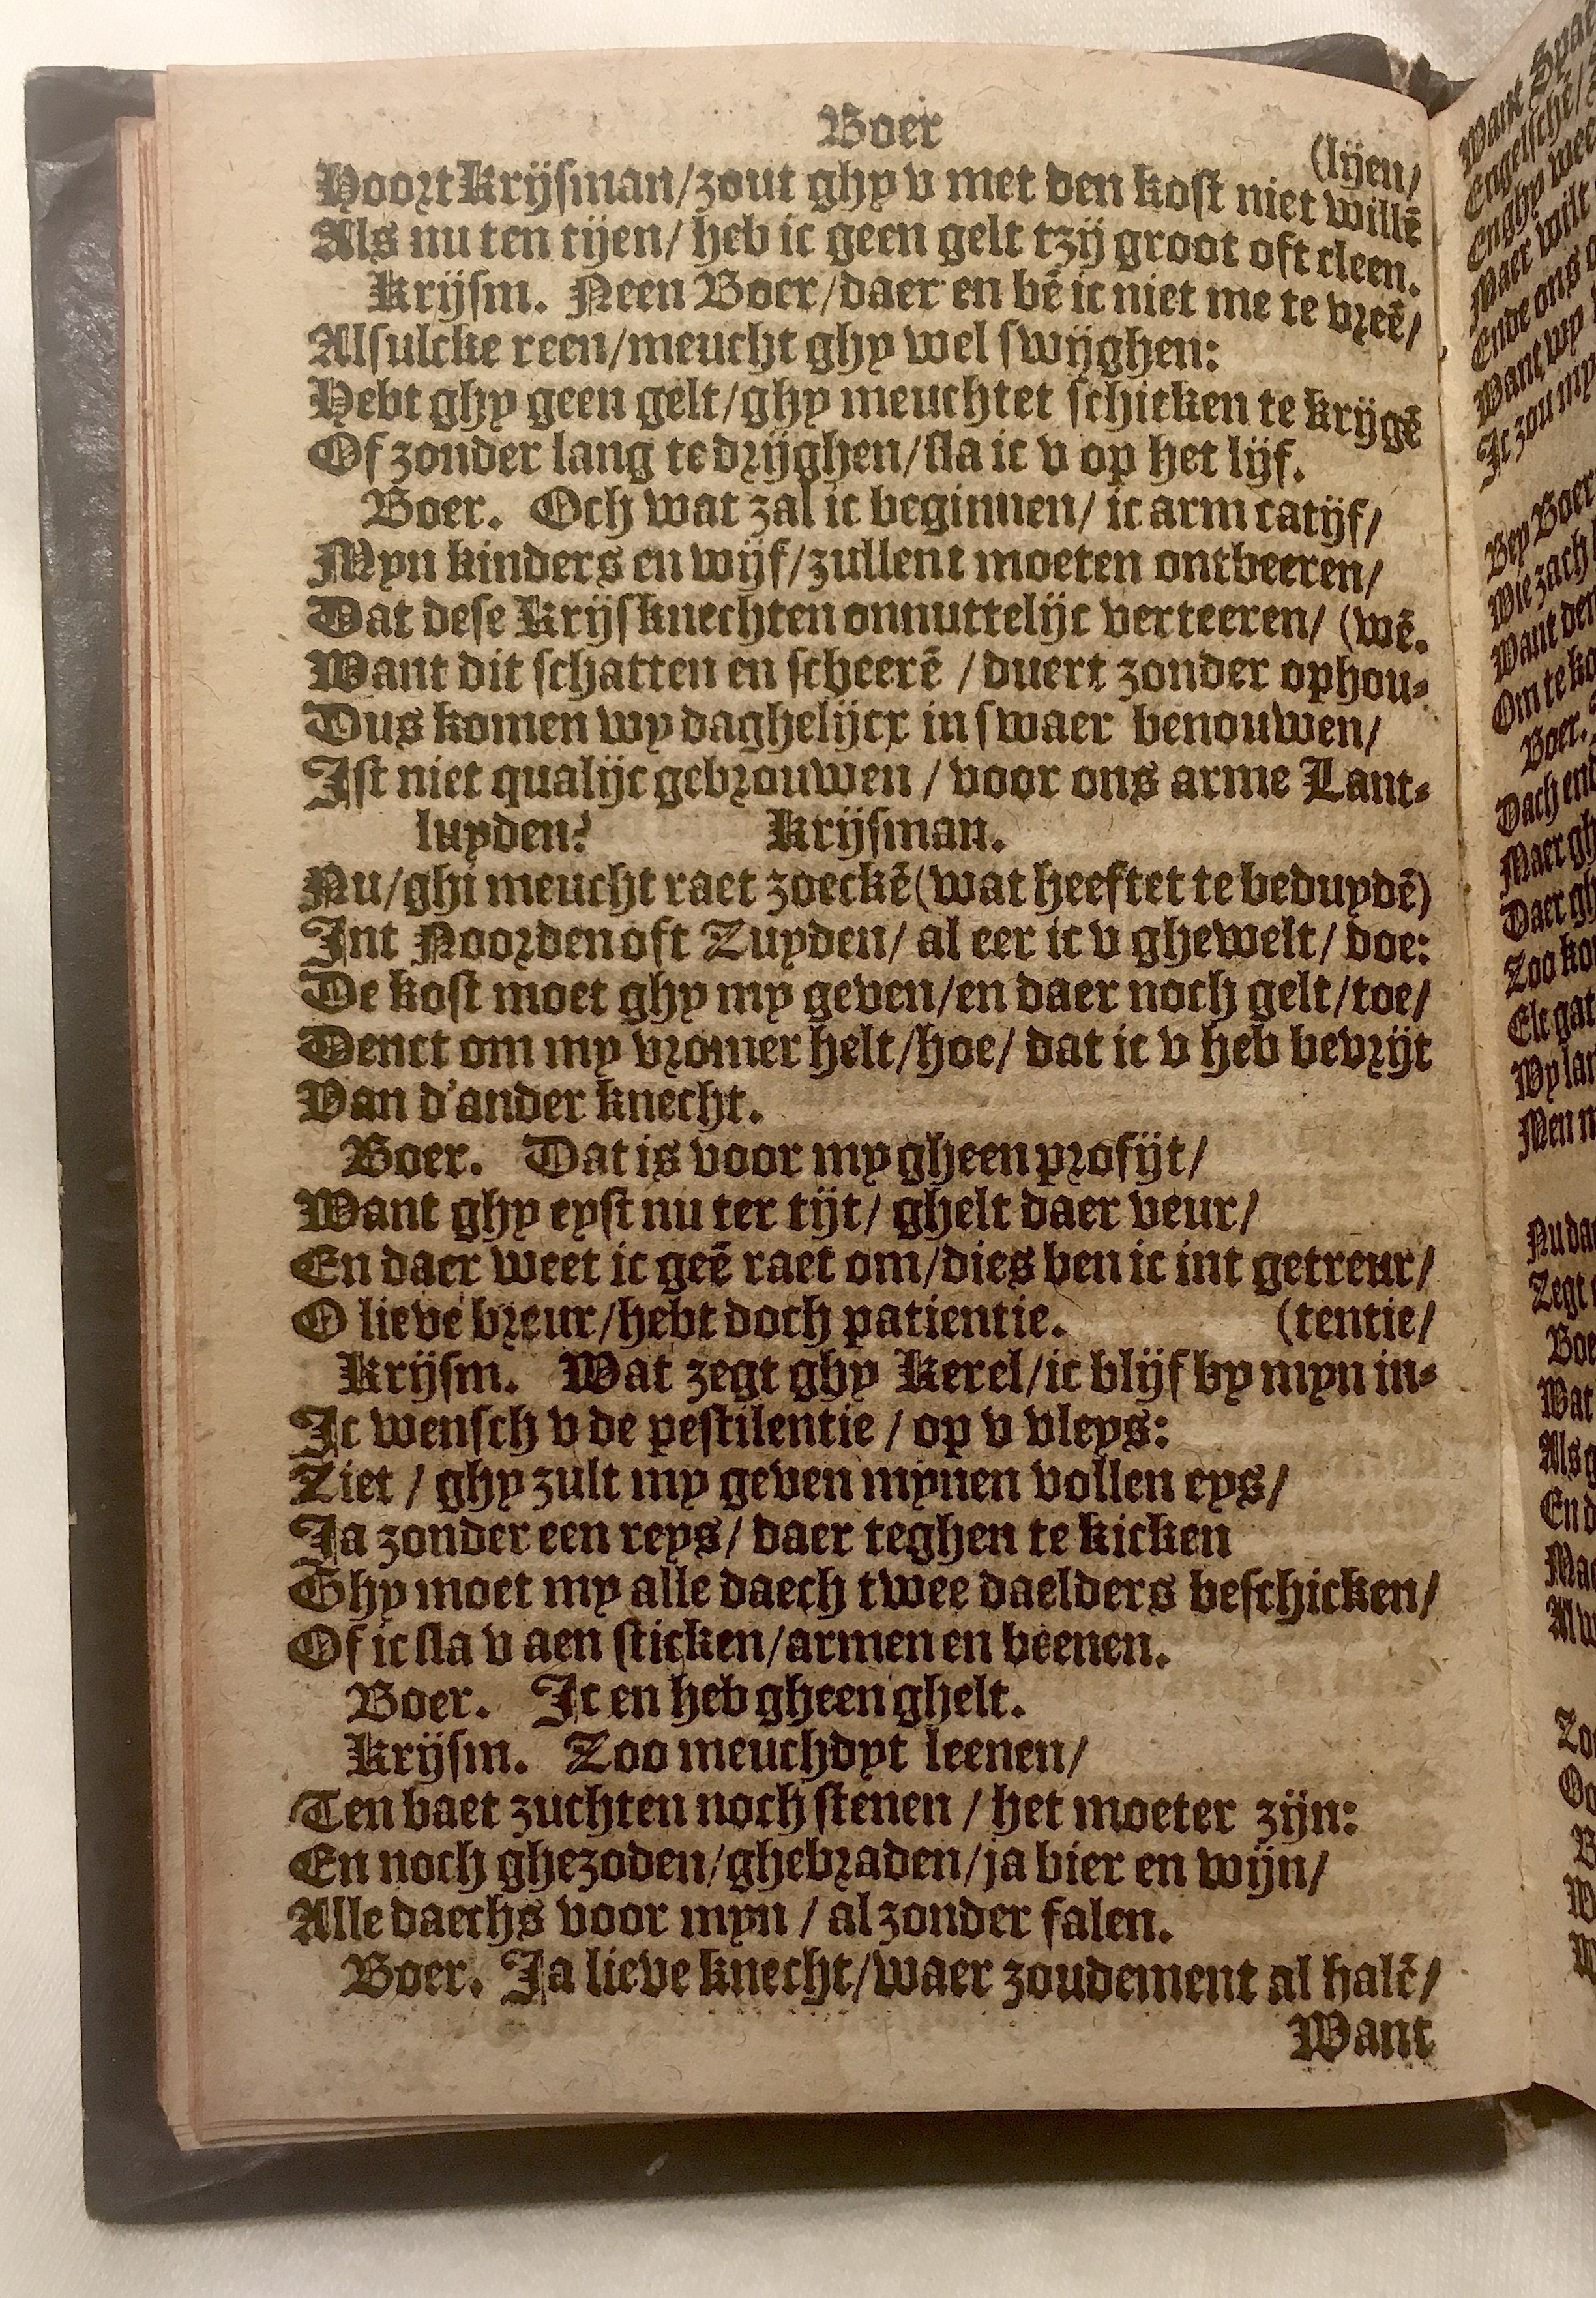 Boer
(lijen/
Hoort Krijsman/zout ghy v met den kost niet willē
Als nu ten tijen/ heb ic geen gelt tzij groot oft cleen.
Krijsm. Neen Boer/daer en bē ic niet me te vreē/
Alsulcke reen/meucht ghy wel swijghen:
Hebt ghy geen gelt/ghy meuchtet schicken te krijgē
Of zonder lang te drijghen/sla ic v op het lijf.
Boer. Och wat zal ic beginnen/ ic arm catijf/
Myn kinders en wijf/zullent moeten ontbeeren/
Dat dese Krijsknechten onnuttelijc verteeren/ (wē.
Want dit schatten en scheerē /duert zonder ophou-
Dus komen wy daghelijcx in swaer benouwen/
Ist niet qualijc gebrouwen / voor ons arme Lant-
luyden? Krijsman.
Nu/ghi meucht raet zoeckē(wat heeftet te beduydē)
Int Noorden oft Zuyden/ al eer ic v ghewelt/ doe:
De kost moet ghy my geven/en daer noch gelt/toe/
Denct om my vromer helt/hoe/ dat ic v heb bevrijt
Van d'ander knecht.
Boer. Dat is voor my gheen profijt/
Want ghy eyst nu ter tijt/ ghelt daer veur/
En daer weet ic geē raet om/dies ben ic int getreur/
O lieve breur/hebt doch patientie. (tentie/
Krijsm. Wat zegt ghy Kerel/ic blijf by myn in-
Ic wensch v de pestilentie / op v vleys:
Ziet / ghy zult my geven mynen vollen eys/
Ja zonder een reys/ daer teghen te kicken
Ghy moet my alle daech twee daelders beschicken/
Of ic sla v aen sticken/armen en beenen.
Boer. Ic en heb gheen ghelt.
Krijsm. Zoo meuchdyt leenen/
Ten baet zuchten noch stenen / het moeter zijn:
En noch ghezoden/ghebraden/ja bier en wijn/
Alle daechs voor myn / al zonder falen.
Boer. Ja lieve knecht/waer zoudement al halē/
Want